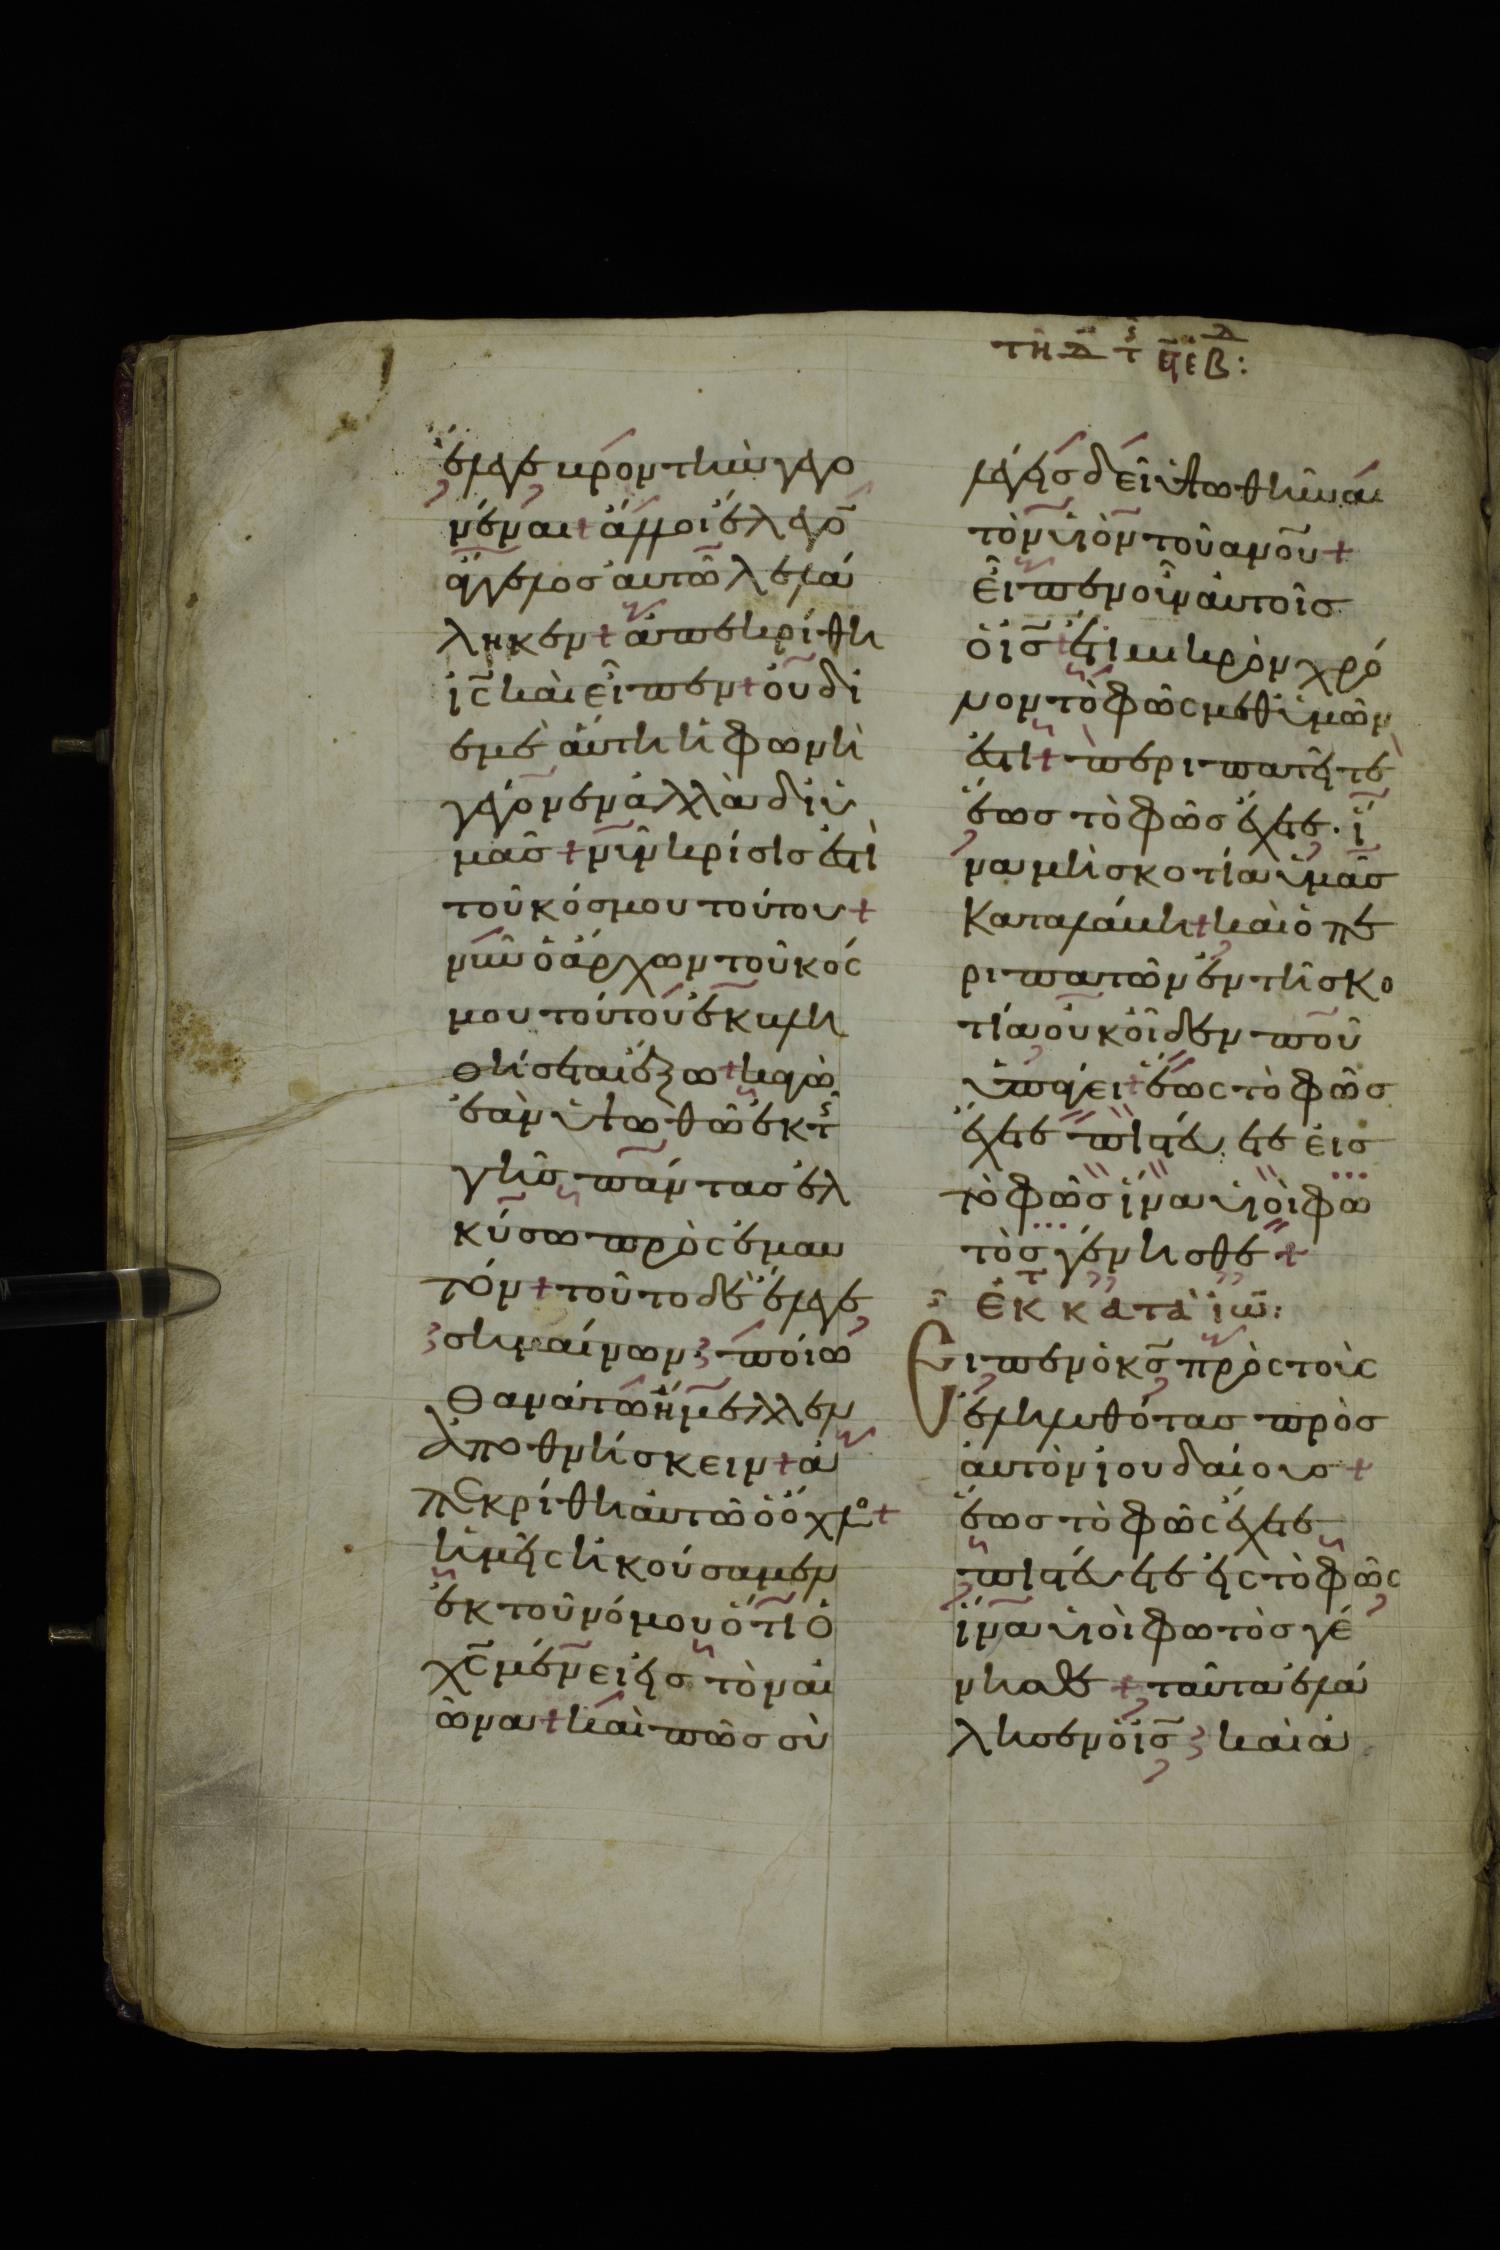 τῆ Δ τς ε ἑβδ:
ἔλεγε κρονπὴν γεγο
νέναι + ἄλλοι ἔλεγο
ἄγγελος αυτῶ λελά
ληκεν + ἀπεκρίθη
ι̅ς̅ καὶ εἶπεν + ὀυ δἰ
ἐμὲ ἁύτη ἡ φωνὴ
γέγονεν ἀλλὰ δι ὑ
μᾶς + νῦν κρίσις ἐστὶ
τοῦ κόσμου τούτου +
νῦν ὁ ἄρχων τοῦ κόσ
μου τούτου ἐκβλη
θήσεται ἔξω + καγὼ
ἐὰν ὑψωθῶ ἐκ τῆς
γῆς πάντας ἑλ
κύσω πρὸς ἐμαυ
τόν + τοῦτο δὲ ἔλεγε
σημαίνων ποίω
θανάτω ἤμελλεν
ἀποθνήσκειν + ἀ
πεκρίθη ἀυτῶ ὁ ὄχλο +
ἡμεῖς ἠκούσαμεν
ἐκ τοῦ νόμου ὅτι ὁ
χ̅ς̅ μένει εἰς τὸν αι
ῶνα + καὶ πῶς σὺ
λέγεις δεῖ ὑψωθῆναι
τὸν υἱὸν τοῦ α̅ν̅ο̅υ̅ +
εἶπεν οὖν ἀυτοῖς
ὁ ι̅ς̅ + ἔτι μικρὸν χρό
νον τὸ φῶς μεθ ὑμῶν
ἐστι + περιπατεῖτε
ἕως τὸ φῶς ἔχετε · ἵ
να μὴ σκοτία ὑμᾶς
Καταλάβη + καὶ ὁ πε
ριπατῶν ἐν τῆ σκο
τία ὀυκ οἶδεν ποῦ
ὑπάγει + ἕως τὸ φῶς
ἔχετε πιστεύετε εἰς
τὸ φῶς ἵνα υἱοὶ φω
τὸς γένησθε +
ἐκ τ κατὰ ἰω:
Εἶπεν ὁ κ̅ς̅ πρὸς τοὺς
ἐληλυθότας πρὸς
ἀυτὸν ἰουδαίους +
ἕως τὸ φῶς ἔχετε
πιστεύετε εἰς τὸ φῶς
ἵνα υἱοὶ φωτὸς γέ
νησθε + ταῦτα ἐλά
λησεν ὁ ι̅ς̅ καὶ ἀ